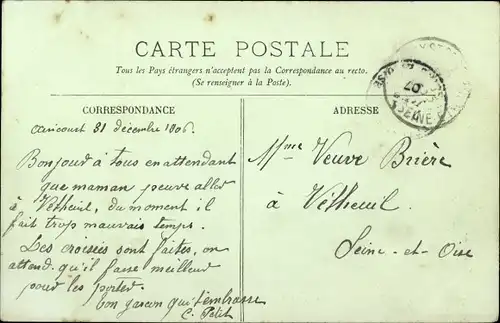 CARTE POSTALE
Tous les Pays étrangers n'acceptent pas la Correspondance au recto.
(Se renseigner à la Poste).
CORRESPONDANCE
ADRESSE
31 décembre 1906.
Bonjour à tous en attendant
que maman peuve aller
à Vétheuil, du moment il
fait trop mauvais temps.
Les croisées sont faites, on
attend qu'il fasse meilleur
pour les porter.
bon garçon qui t'embrasse
C. Petit
Mme Veuve Brière
à Vétheuil
Seine-et-Oise
07
SEINE